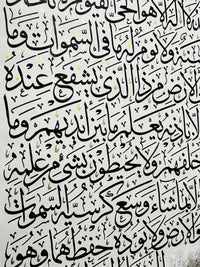 لَا إِلَهَ إِلَّا هُوَ الْحَيُّ الْقَيُّومُ
سِنَةٌ وَلَا نَوْمٌ لَهُ مَا فِي السَّمٰوَاتِ وَمَا
الْأَرْضِ مَنْ ذَا الَّذِي يَشْفَعُ عِنْدَهُ
إِلَّا بِإِذْنِهِ يَعْلَمُ مَا بَيْنَ أَيْدِيهِمْ وَمَا
خَلْفَهُمْ وَلَا يُحِيطُونَ بِشَيْءٍ مِنْ عِلْمِهِ
إِلَّا بِمَا شَاءَ وَسِعَ كُرْسِيُّهُ السَّمٰوَاتِ
وَالْأَرْضَ وَلَا يَؤُدُهُ حِفْظُهُمَا وَهُوَ